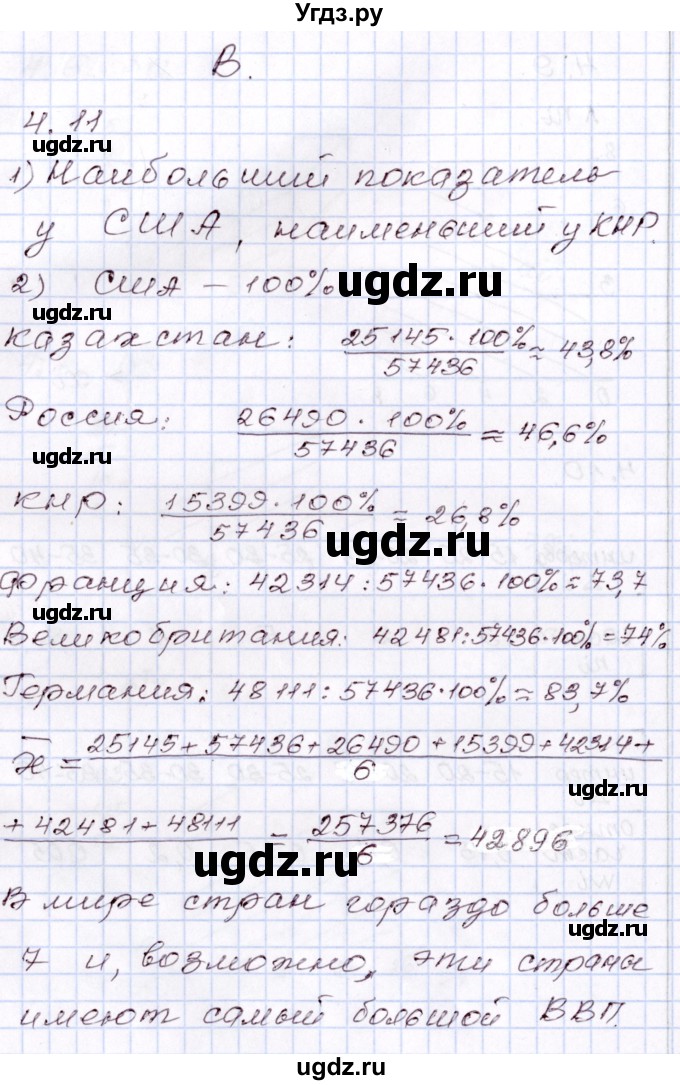 Угдз.ру
В.
4.11
ugdz.ru
1) Наибольший показатель
у США, наименьший у КНР.
ugdz.ru
2) США – 100%
ugdz.ru
Казахстан: 25145·100%/57436 ≈ 43,8%
Россия: 26490·100%/57436 ≈ 46,6%
ugdz.ru
КНР: 15399·100%/57436 ≈ 26,8%
ugdz.ru
Франция: 42314:57436·100%≈73,7
Великобритания: 42481:57436·100%=74%
Германия: 48111:57436·100%≈83,7%
x̄ = 25145+57436+26490+15399+42314+
6
ugdz.ru
ugdz.ru
+42481+48111 = 257376/6 = 42896
ugdz.ru
ugdz.ru
В мире стран гораздо больше
7 и, возможно, эти страны
имеют самый большой ВВП.
ugdz.ru